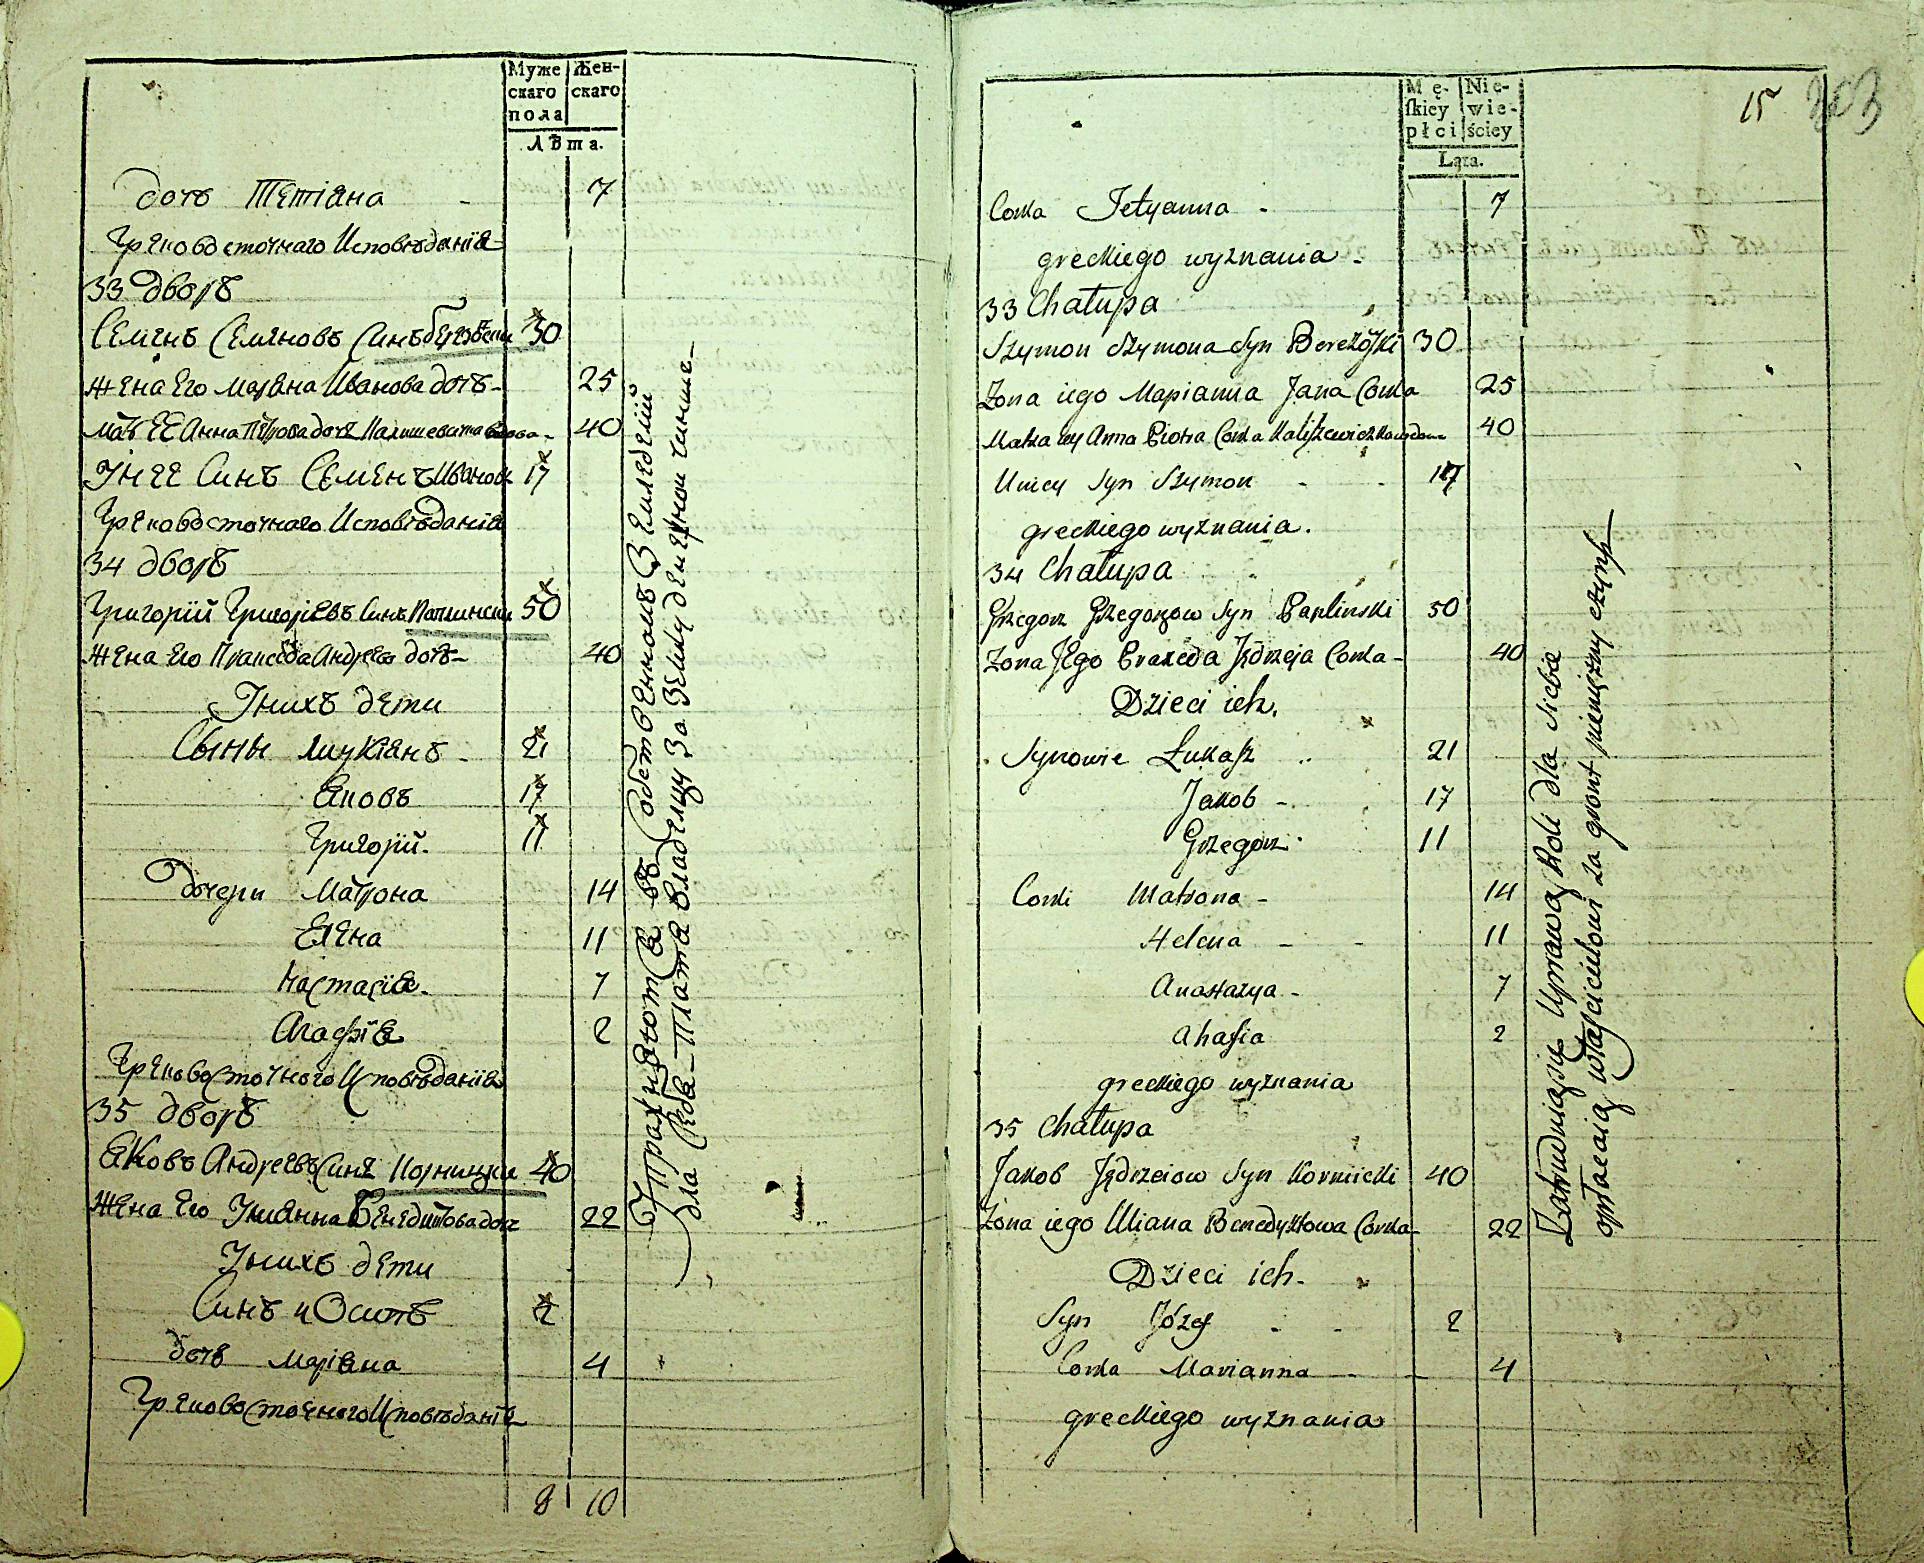 Муже
скаго
пола
Жен-
скаго
лѣта.
дочь Тетіана - 7
Грековосточнаго Исповѣданія
33 дворъ
Семенъ Семеновъ Синъ 30
жена Его Маріана Иванова дочь - 25
мать ЕЕ Анна Петрова дочь вдова - 40
У нее Синъ Семенъ Иванов 17
Грековосточнаго Исповѣданія
34 дворъ
Григорій Григоріевъ Синъ 50
жена Его Параседа Андреева дочь - 40
У нихъ дети
Сыны Лукіянъ - 21
Яковъ 17
Григорій. 11
дочери Матрона 14
Елена 11
Настасія. 7
Агафія 2
Грековосточного Исповѣданія
35 дворъ
Яковъ Андреевъ Синъ Корницки 40
жена Его Улиянна Бенедиктова дочь 22
У нихъ дети
Синъ Осипъ 2
дочь Маріана 4
Грековосточного Исповѣданія
8 10
Упражняются въ Собственномъ Земледелій
для себя - Платя владелцу За Землю денежной чинше -
15 303
Mę-
skiey
płci
Nie-
wie-
ściey
Lata.
Corka Tetyanna - 7
greckiego wyznania -
33 Chałupa
Szymon Szymona Syn Berezoski 30
Zona iego Maryanna Jana Corka 25
Matka iey Anna Piotra Corka 40
U niey Syn Szymon - - 17
greckiego wyznania.
34 Chałupa
Grzegorz Grzegorzow Syn Paplinski 50
Zona Jego Praxeda Jędrzeja Corka - 40
Dzieci ich.
Synowie Łukasz 21
Jakob - 17
Grzegorz 11
Corki Matrona - 14
Helena - - 11
Anastazya - 7
Ahafia 2
greckiego wyznania
35 Chałupa
Jakob Jędrzeiow Syn Kornicki 40
Zona iego Uliana Benedyktowa Corka - 22
Dzieci ich -
Syn Józef - - 2
Corka Marianna - - 4
greckiego wyznania
Zatrudniaią się Uprawą Roli dla siebie
opłacaią właścicielowi za gront pieniężny czynsz